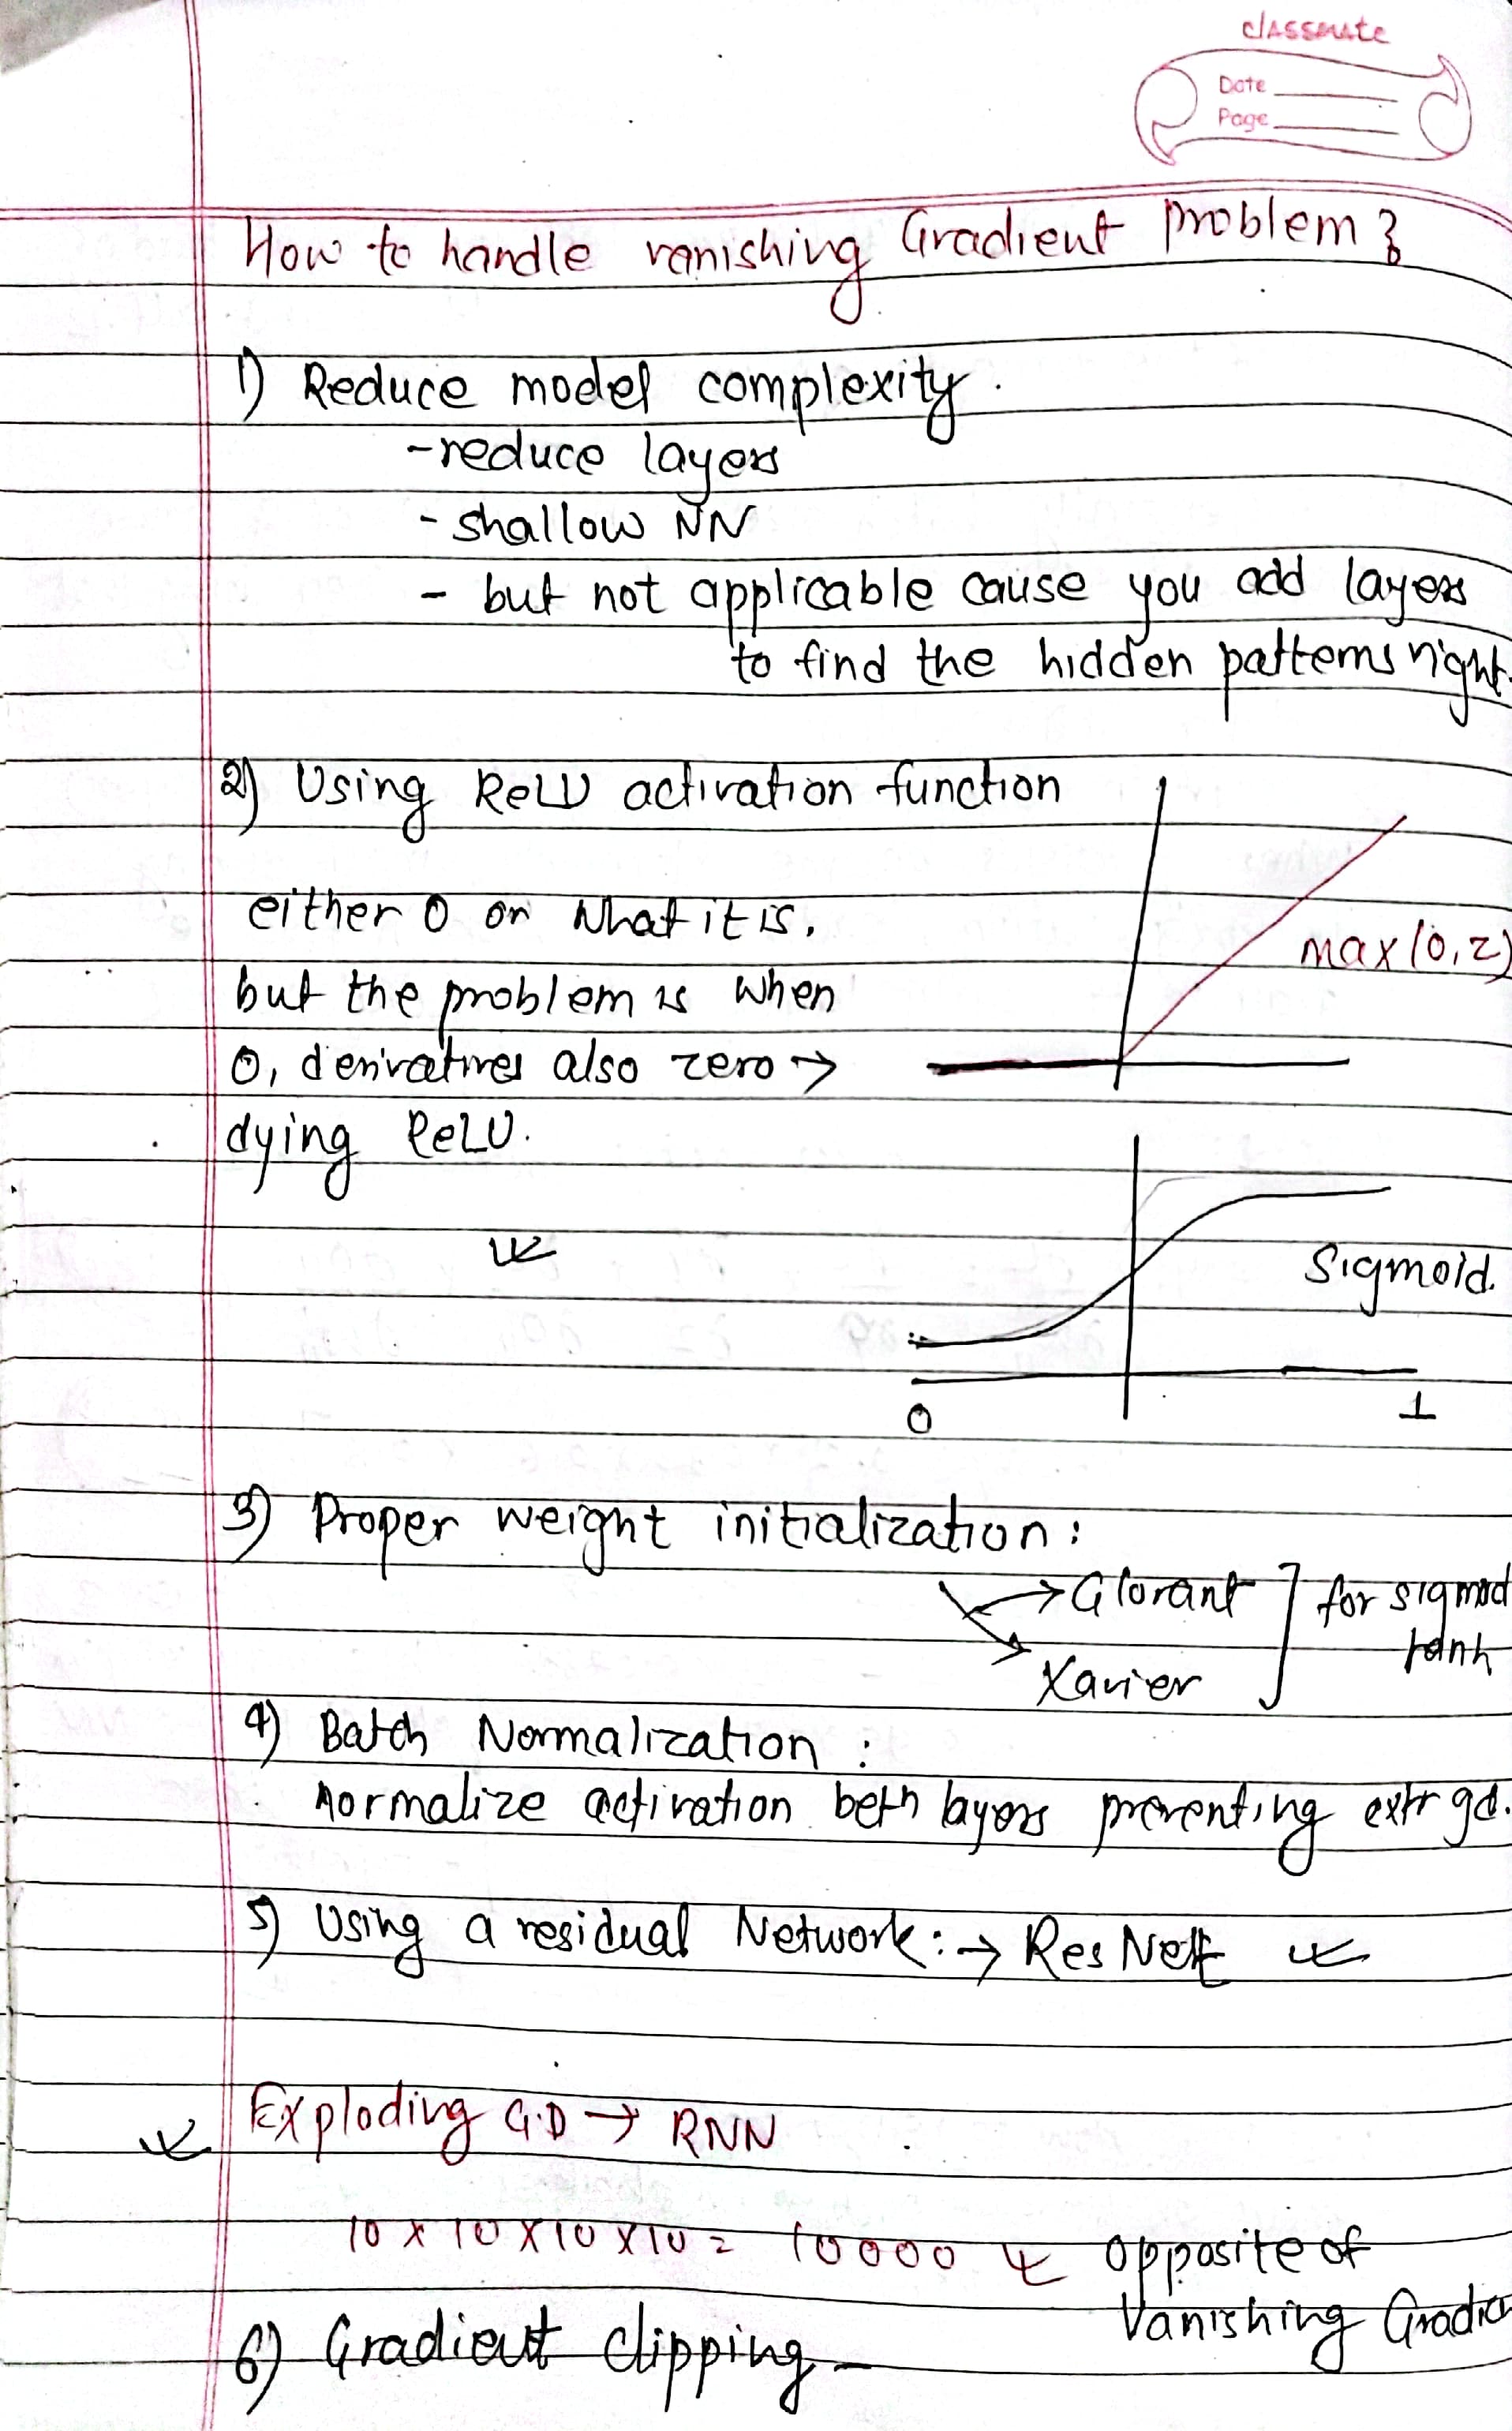 classmate
Date
Page
How to handle vanishing Gradient problem?
1) Reduce model complexity.
-reduce layers
- shallow NN
- but not applicable cause you add layers
to find the hidden patterns right.
2) Using ReLU activation function
either 0 or what it is.
max(0,z)
but the problem is when
0, derivatives also zero →
dying ReLU.
Sigmoid.
0 1
3) Proper weight initialization:
→ Glorant ] for sigmod
tanh
→ Xavier
4) Batch Normalization :
normalize activation betn layers preventing extr gd.
5) Using a residual Network: → ResNet
Exploding G.D → RNN
10 x 10 x 10 x 10 = 10000 opposite of
Vanishing Gradien
6) Gradient clipping